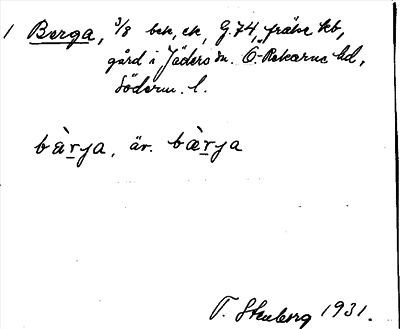 1 Berga, 3/8 bek, ek, G. 74, frälse kb,
gård i Jäders sn. Ö.-Rekarne hd,
Söderm. l.
bàrya, äv. bæ̀rya
T. Stenberg 1931.